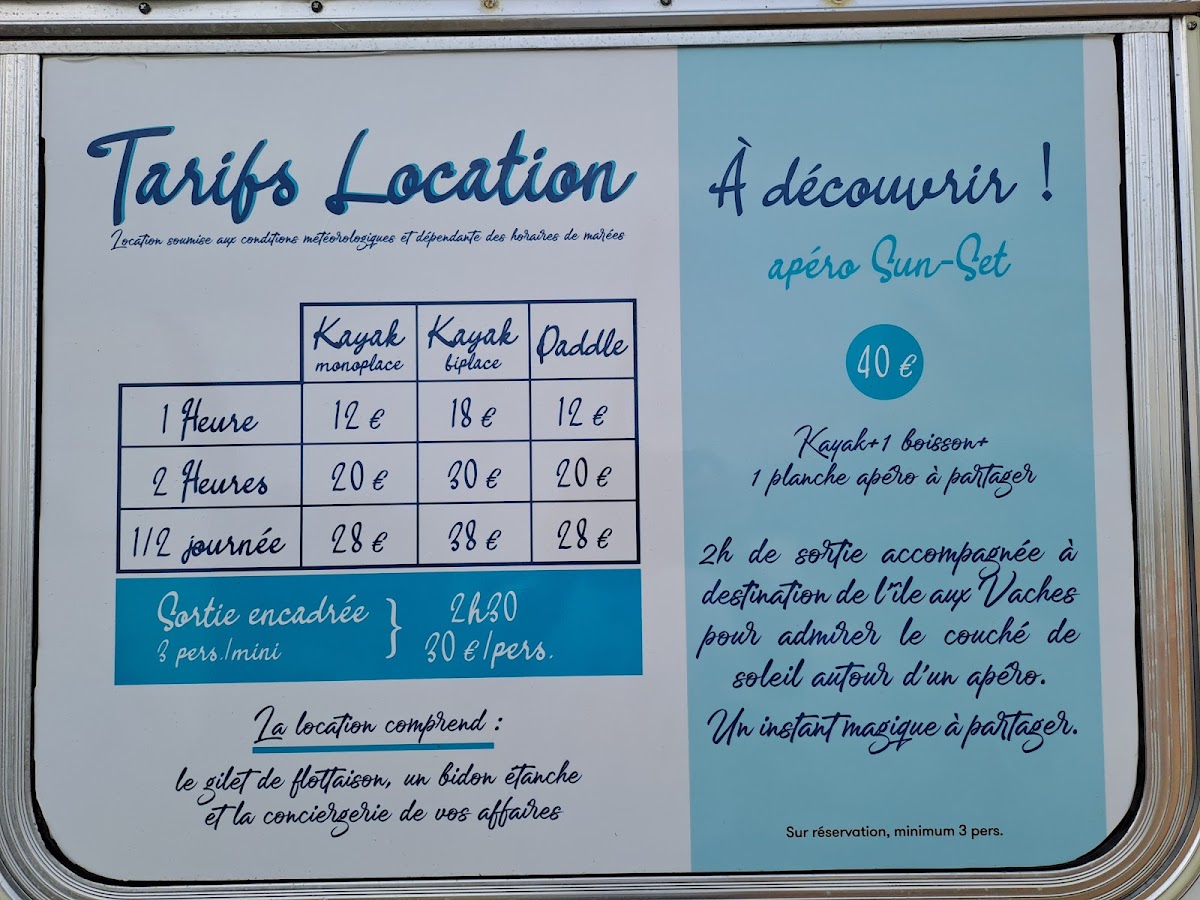 Tarifs Location
Location soumise aux conditions météorologiques et dépendante des horaires de marées
Kayak monoplace Kayak biplace Paddle
1 Heure 12 € 18 € 12 €
2 Heures 20 € 30 € 20 €
1/2 journée 28 € 38 € 28 €
Sortie encadrée } 2h30
3 pers./mini 30 €/pers.
La location comprend :
le gilet de flottaison, un bidon étanche
et la conciergerie de vos affaires
À découvrir !
apéro Sun-Set
40 €
Kayak+1 boisson+
1 planche apéro à partager
2h de sortie accompagnée à
destination de l'île aux Vaches
pour admirer le couché de
soleil autour d'un apéro.
Un instant magique à partager.
Sur réservation, minimum 3 pers.